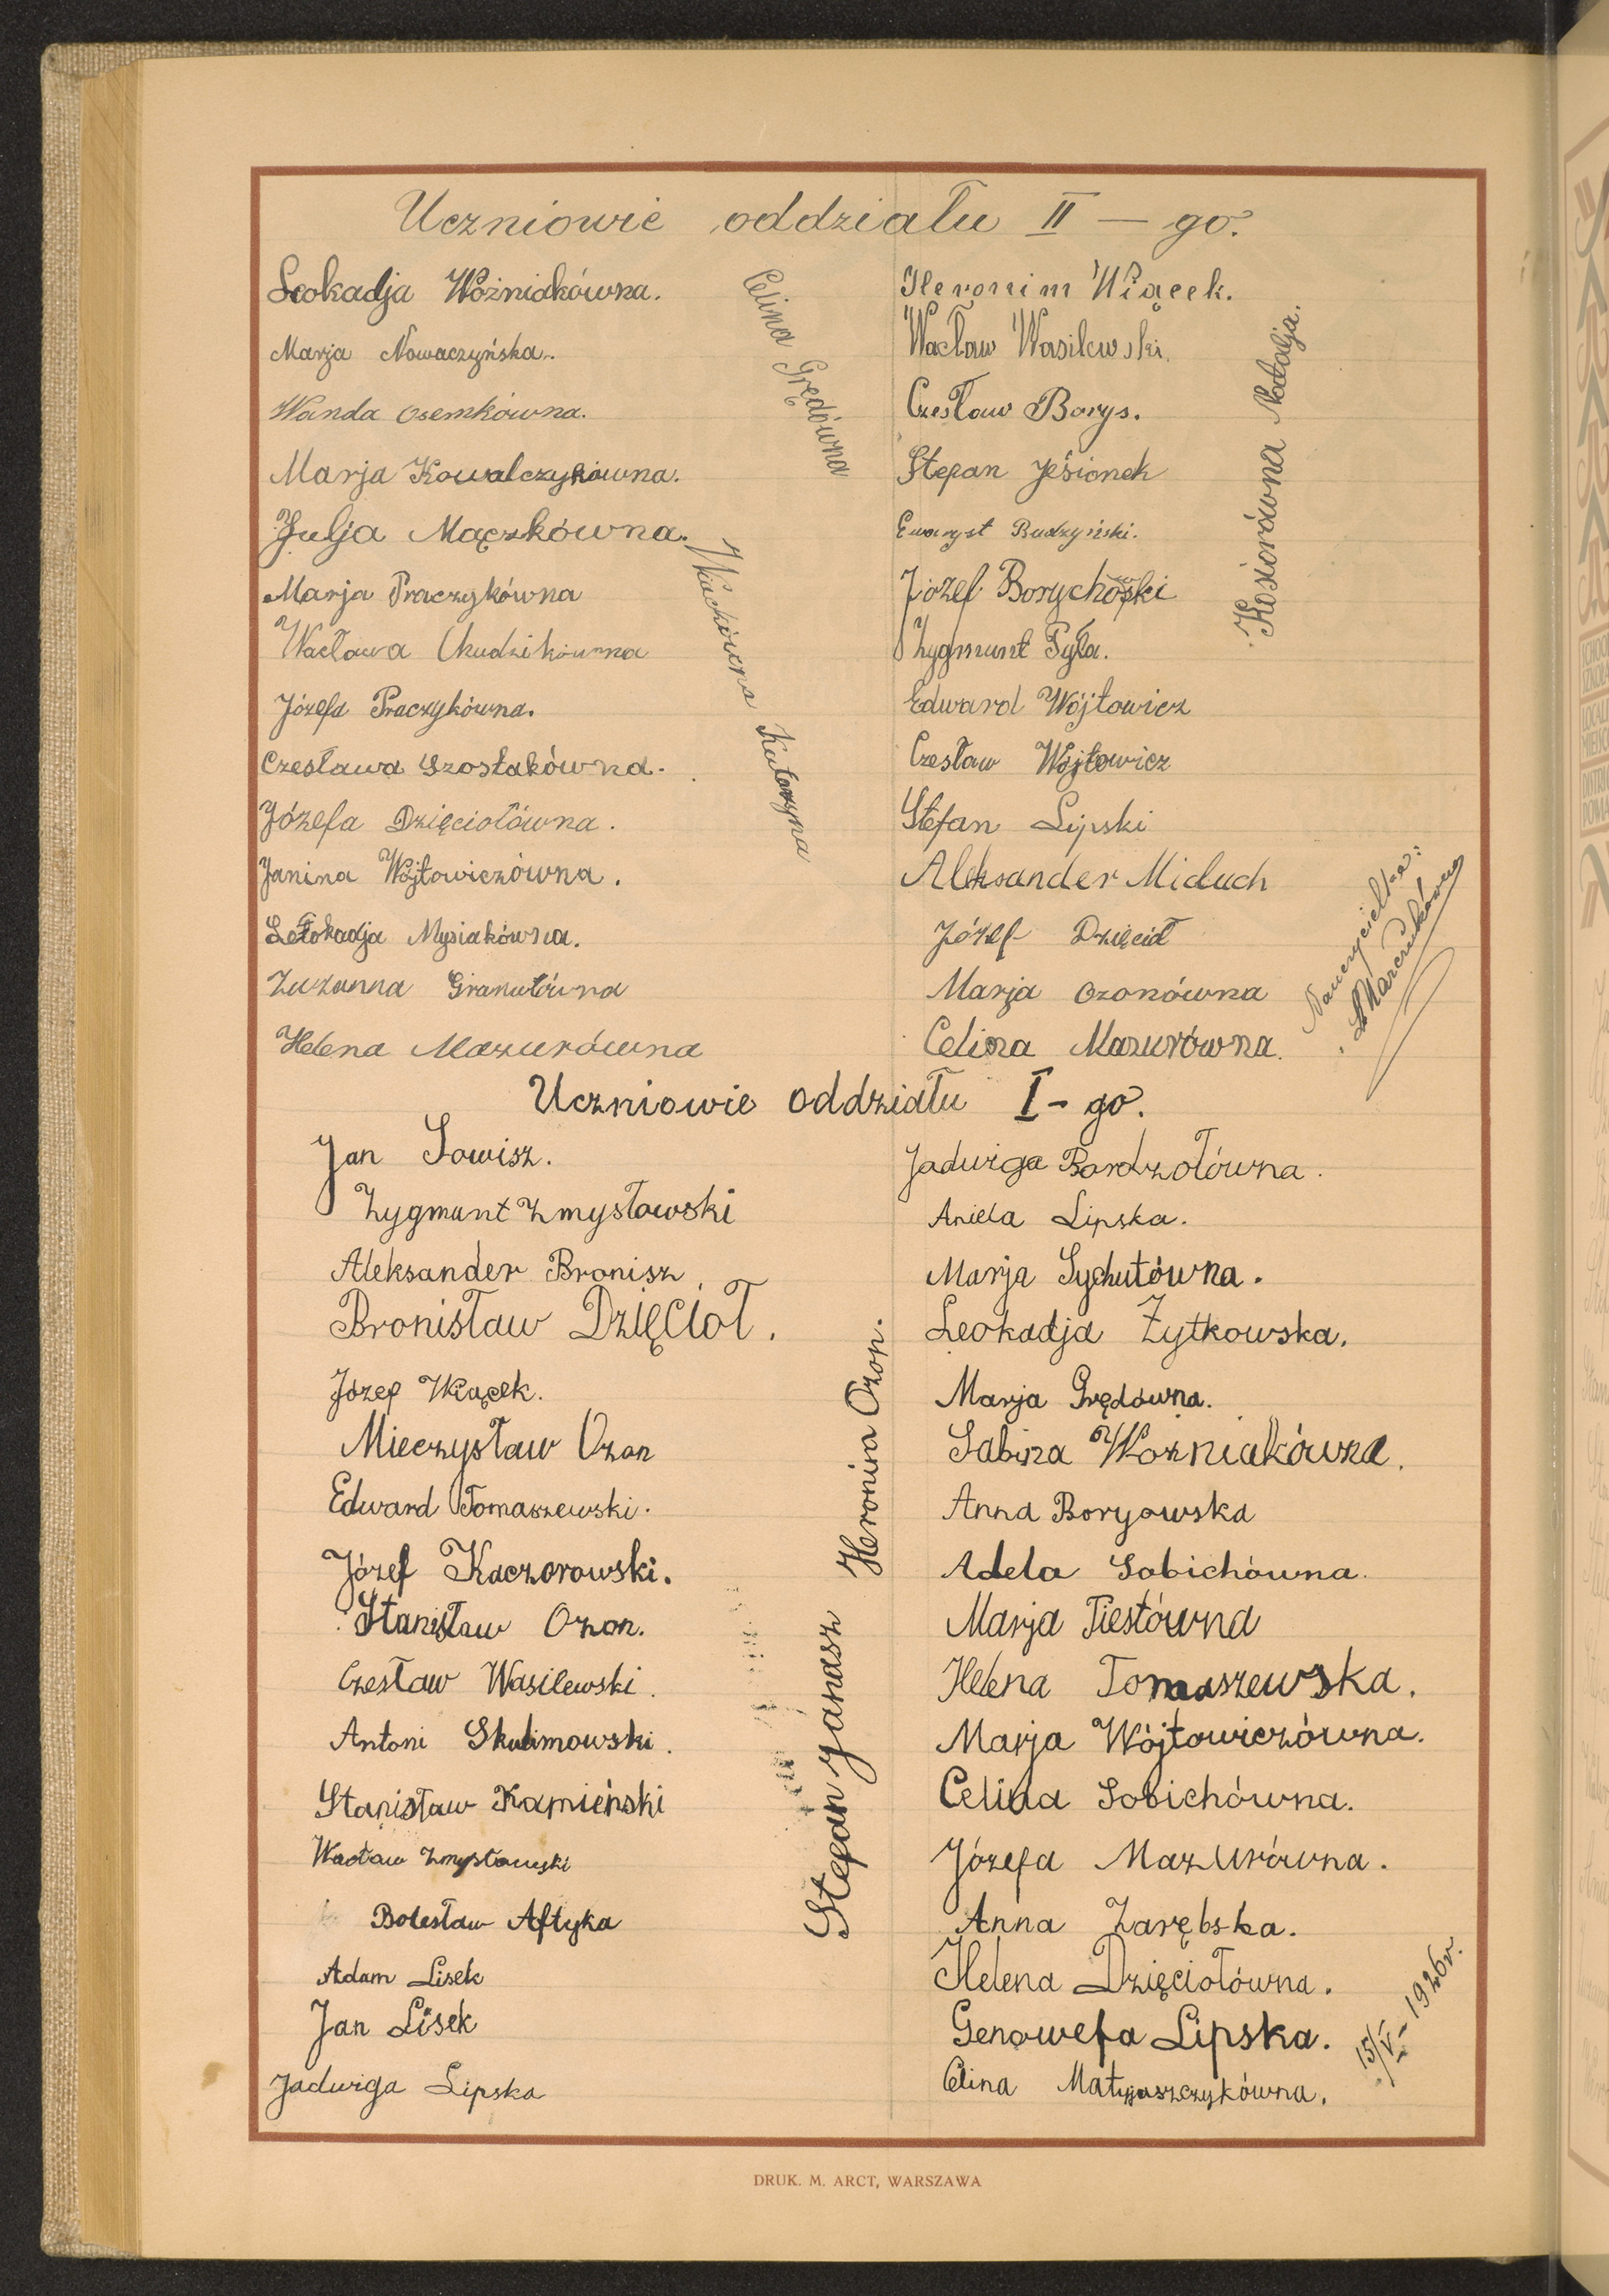 Uczniowie oddziału II — go.
Leokadja Woźniakówna.
Marja Nowaczyńska.
Wanda Osemkówna.
Marja Kowalczykówna.
Julja Mączkówna.
Marja Praczykówna
Wacława Chudzikówna
Józefa Praczykówna.
Czesława Szostakówna.
Józefa Dzięciołówna.
Janina Wójtowiczówna.
Letokadja Mysiakówna.
Zuzanna Granutówna
Helena Mazurówna
Celina Grędówna
Wiackówna Katarzyna
Heronim Wiącek.
Wacław Wasilewski.
Czesław Borys.
Stefan Jesionek
Ewaryst Budzyński.
Józef Borychoski
Zygmunt Pyła.
Edward Wójtowicz
Czesław Wójtowicz
Stefan Lipski
Aleksander Miduch
Józef Dzięcioł
Marja Ozonówna
Celina Mazurówna.
Kosiorówna Natalja.
Nauczycielka:
Uczniowie oddziału I - go.
Jan Sowisz.
Zygmunt Zmysłowski
Aleksander Bronisz.
Bronisław Dzięcioł.
Józef Wiącek.
Mieczysław Ozon
Edward Tomaszewski.
Józef Kaczorowski.
Stanisław Ozon.
Czesław Wasilewski.
Antoni Skulimowski.
Stanisław Kamieński
Wacław Zmysłowski
Bolesław Aftyka
Adam Lisek
Jan Lisek
Jadwiga Lipska
Heronina Ozon.
Stefan Janasz
Jadwiga Bardzołówna.
Aniela Lipska.
Marja Sychutówna.
Leokadja Żytkowska.
Marja Grędówna.
Sabina Woźniakówna.
Anna Boryowska
Adela Sobichówna.
Marja Piestówna
Helena Tomaszewska.
Marja Wójtowiczówna.
Celina Sobichówna.
Józefa Mazurówna.
Anna Zarębska.
Helena Dzięciołówna.
Genowefa Lipska.
Celina Matyjaszczykówna.
15/V - 1926 r.
DRUK. M. ARCT, WARSZAWA